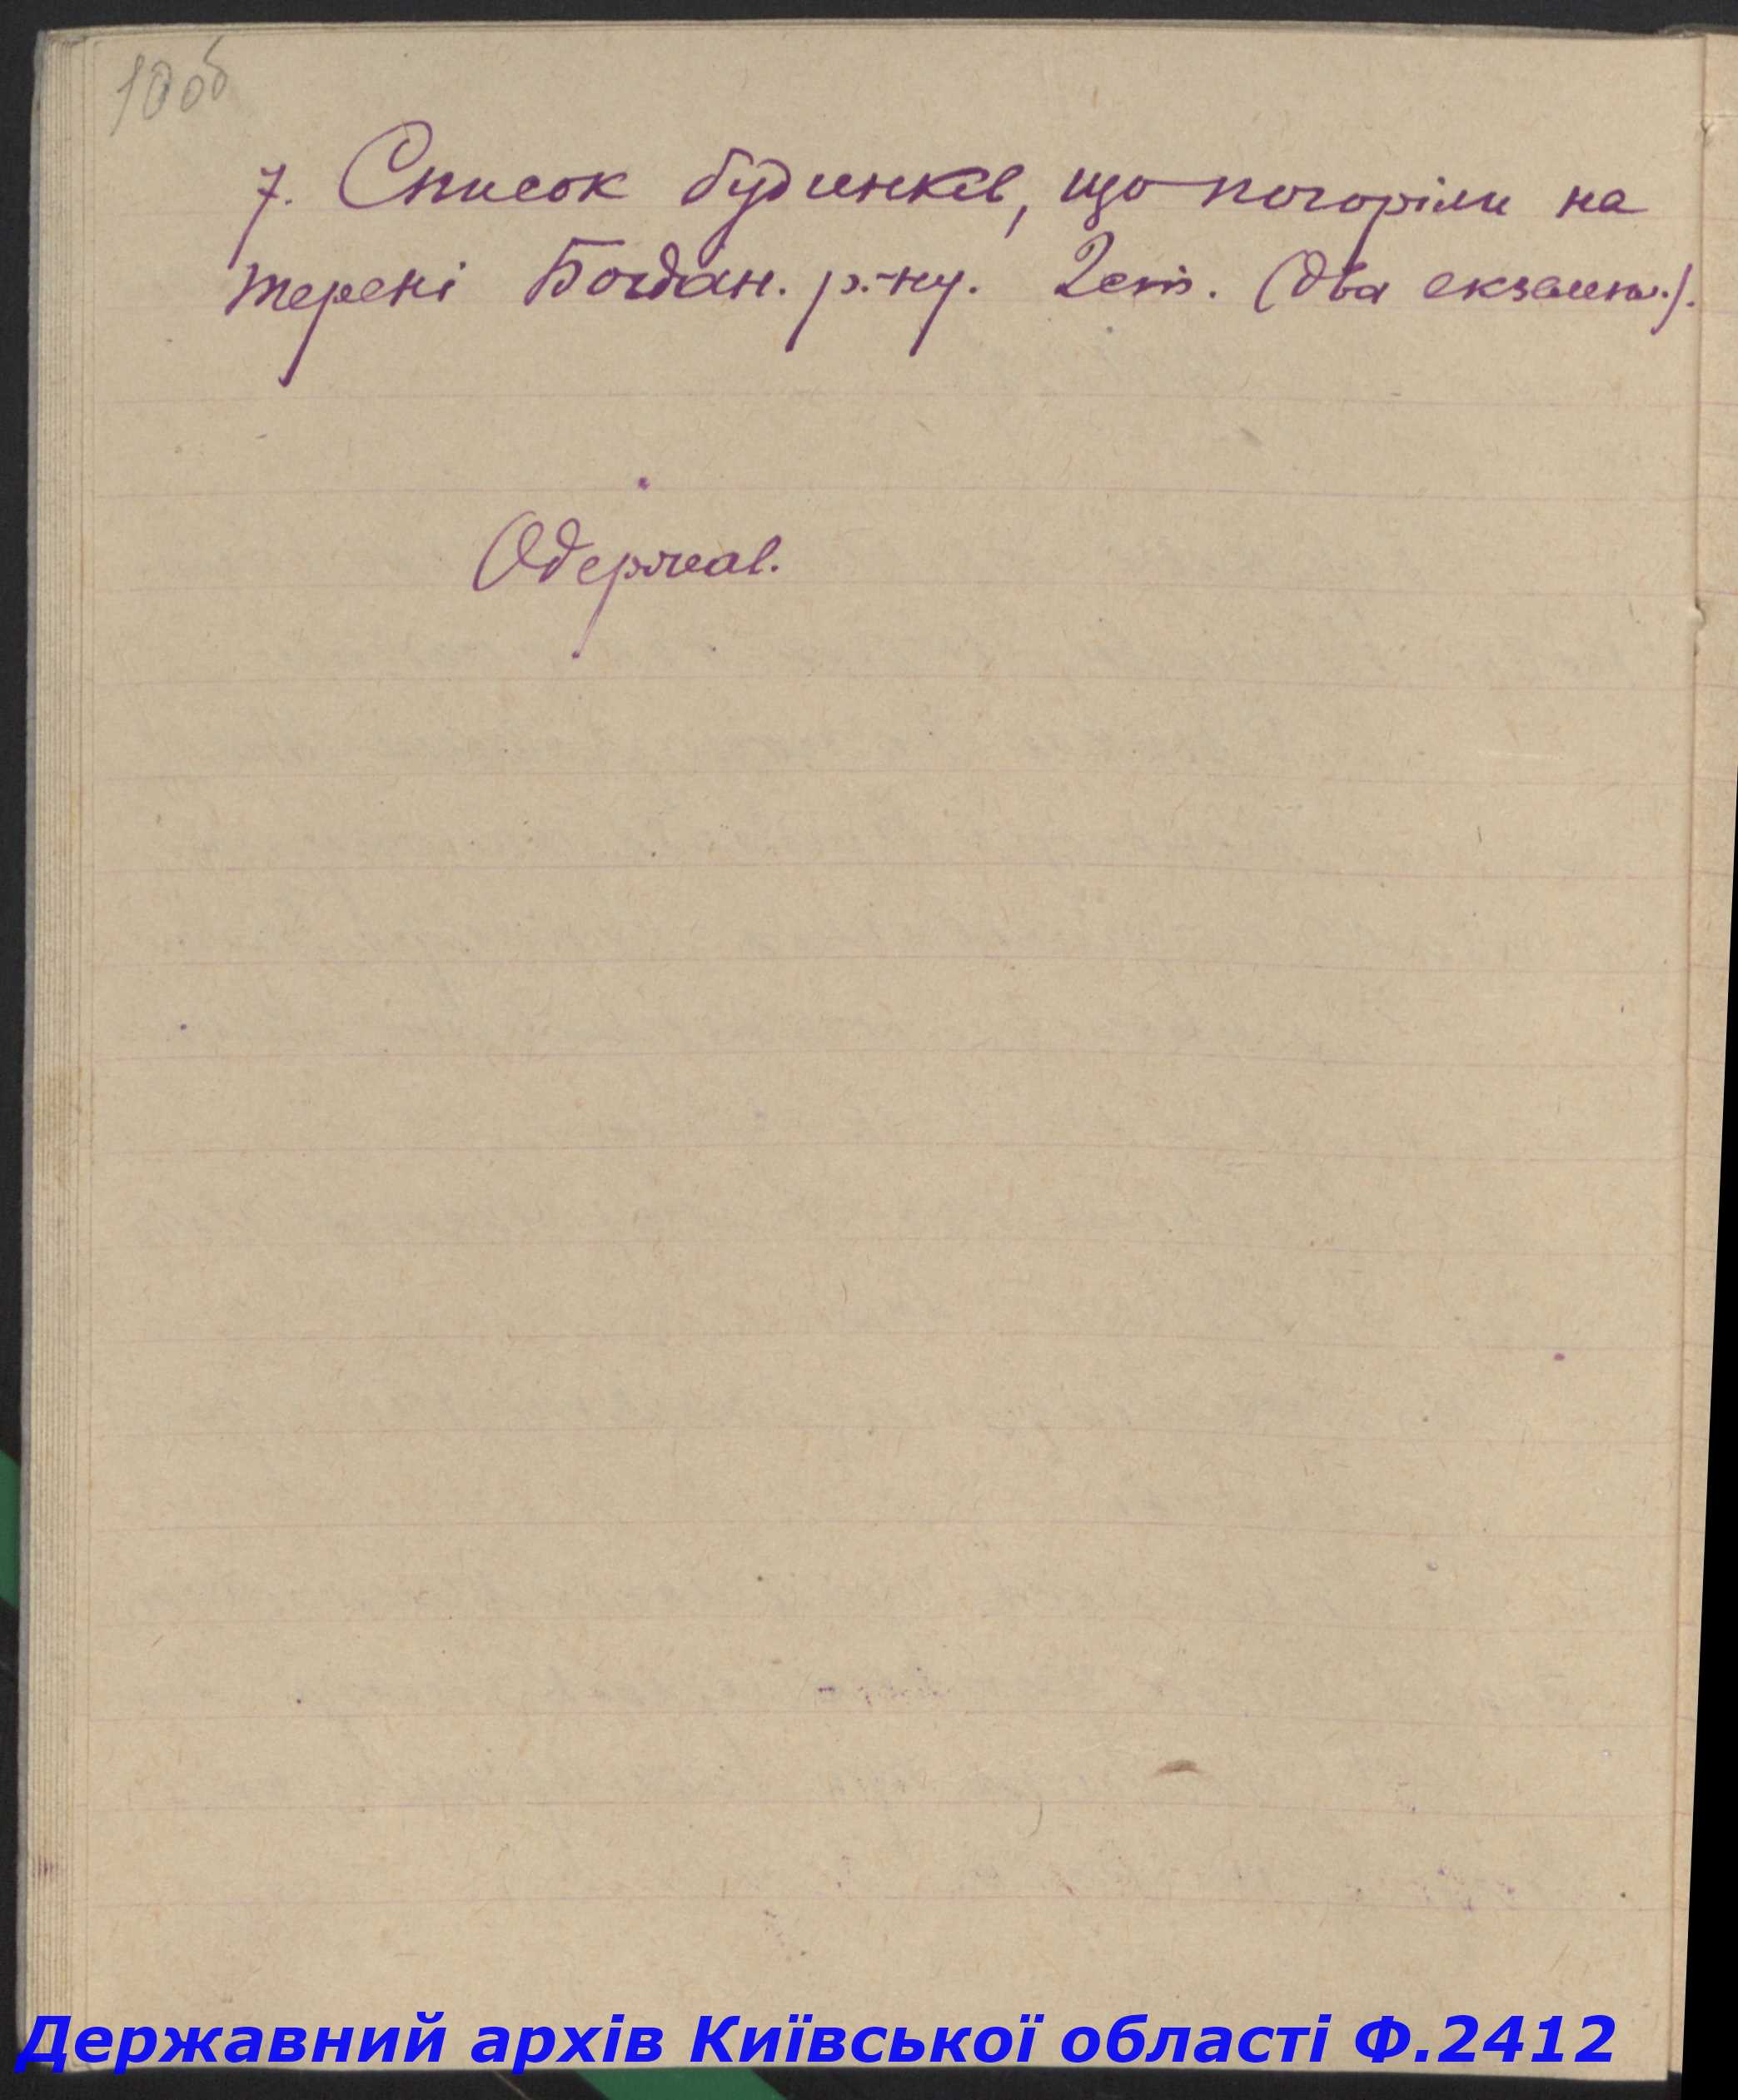 10об
7. Список будинків, що погоріли на
терені Богдан. р-ну. 2 ст. (два екземп.).
Одержав.
Державний архів Київської області Ф.2412